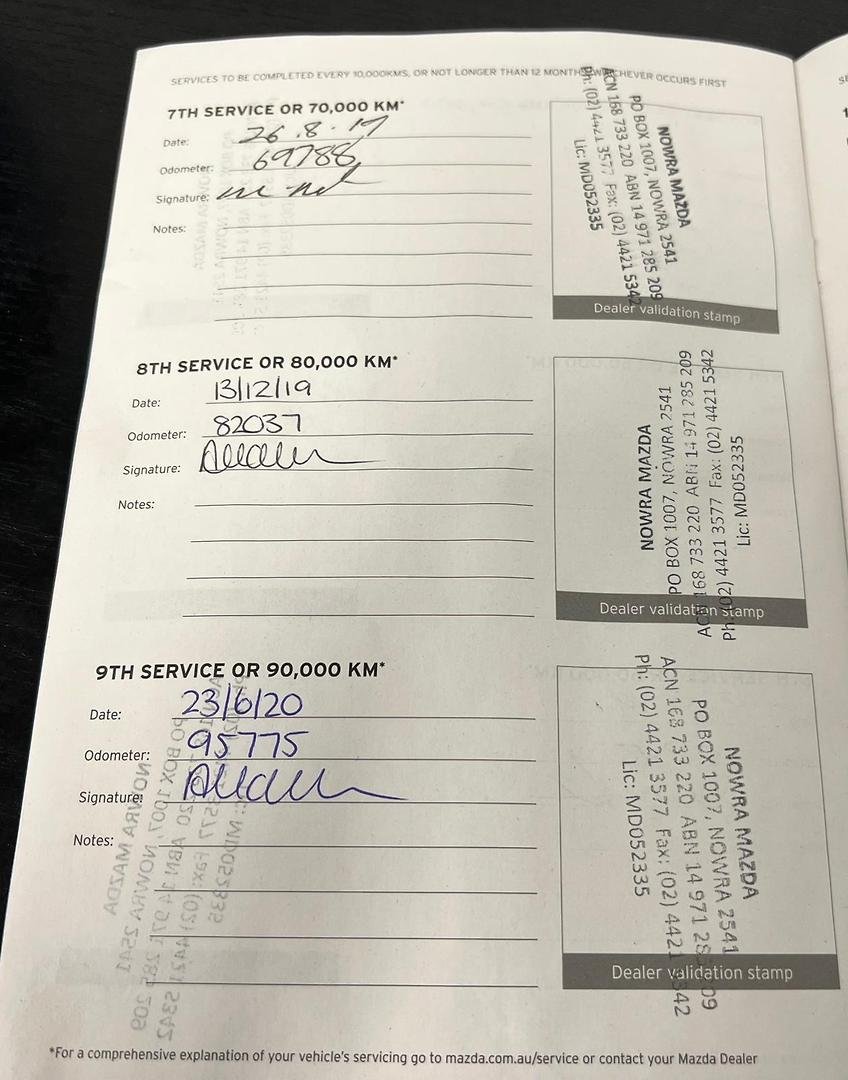 SERVICES TO BE COMPLETED EVERY 10,000KMS, OR NOT LONGER THAN 12 MONTHS, WHICHEVER OCCURS FIRST
7TH SERVICE OR 70,000 KM*
Date: 26.8.19
Odometer: 69788
Signature:
Notes:
NOWRA MAZDA
PO BOX 1007, NOWRA 2541
ACN 168 733 220 ABN 14 971 285 209
Ph: (02) 4421 3577 Fax: (02) 4421 5342
Lic: MD052335
Dealer validation stamp
8TH SERVICE OR 80,000 KM*
Date: 13/12/19
Odometer: 82037
Signature:
Notes:
NOWRA MAZDA
PO BOX 1007, NOWRA 2541
ACN 168 733 220 ABN 14 971 285 209
Ph: (02) 4421 3577 Fax: (02) 4421 5342
Lic: MD052335
Dealer validation stamp
9TH SERVICE OR 90,000 KM*
Date: 23/6/20
Odometer: 95775
Signature:
Notes:
NOWRA MAZDA
PO BOX 1007, NOWRA 2541
ACN 168 733 220 ABN 14 971 285 209
Ph: (02) 4421 3577 Fax: (02) 4421 5342
Lic: MD052335
Dealer validation stamp
*For a comprehensive explanation of your vehicle's servicing go to mazda.com.au/service or contact your Mazda Dealer